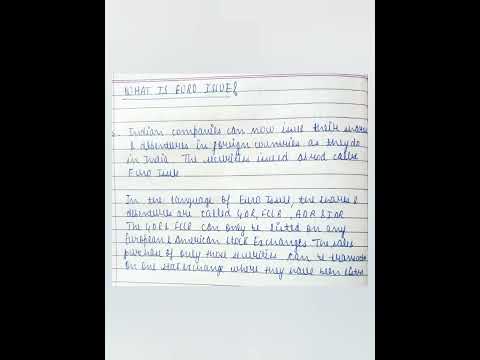 WHAT IS EURO ISSUE?
Indian companies can now issue their shares
& debentures in foreign countries as they do
in India. The securities issued abroad called
Euro Issue
In the language of Euro Issue, the shares &
debentures are called GDR, FCCB, ADR & IDR
The GDR & FCCB can only be listed on any
European & American Stock Exchanges. The sales
purchase of only these securities can be transacted
on one stock exchange where they have been listed